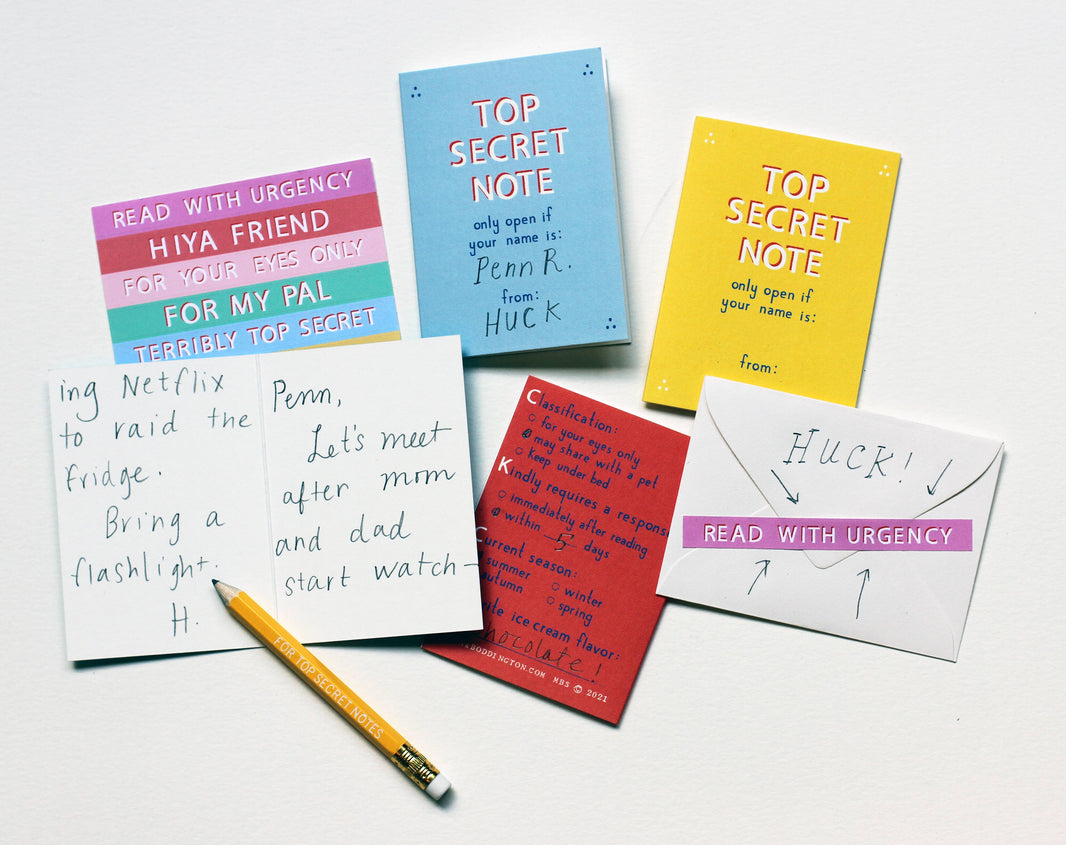 READ WITH URGENCY
HIYA FRIEND
FOR YOUR EYES ONLY
FOR MY PAL
TERRIBLY TOP SECRET
TOP
SECRET
NOTE
only open if
your name is:
Penn R.
from:
HUCK
TOP
SECRET
NOTE
only open if
your name is:
from:
ing Netflix
to raid the
fridge.
Bring a
flashlight.
H.
Penn,
Let's meet
after mom
and dad
start watch-
Classification:
for your eyes only
may share with a pet
keep under bed
Kindly requires a respons
immediately after reading
within 5 days
Current season:
summer
winter
autumn
spring
ice cream flavor:
chocolate!
BODDINGTON.COM MBS © 2021
HUCK!
READ WITH URGENCY
FOR TOP SECRET NOTES